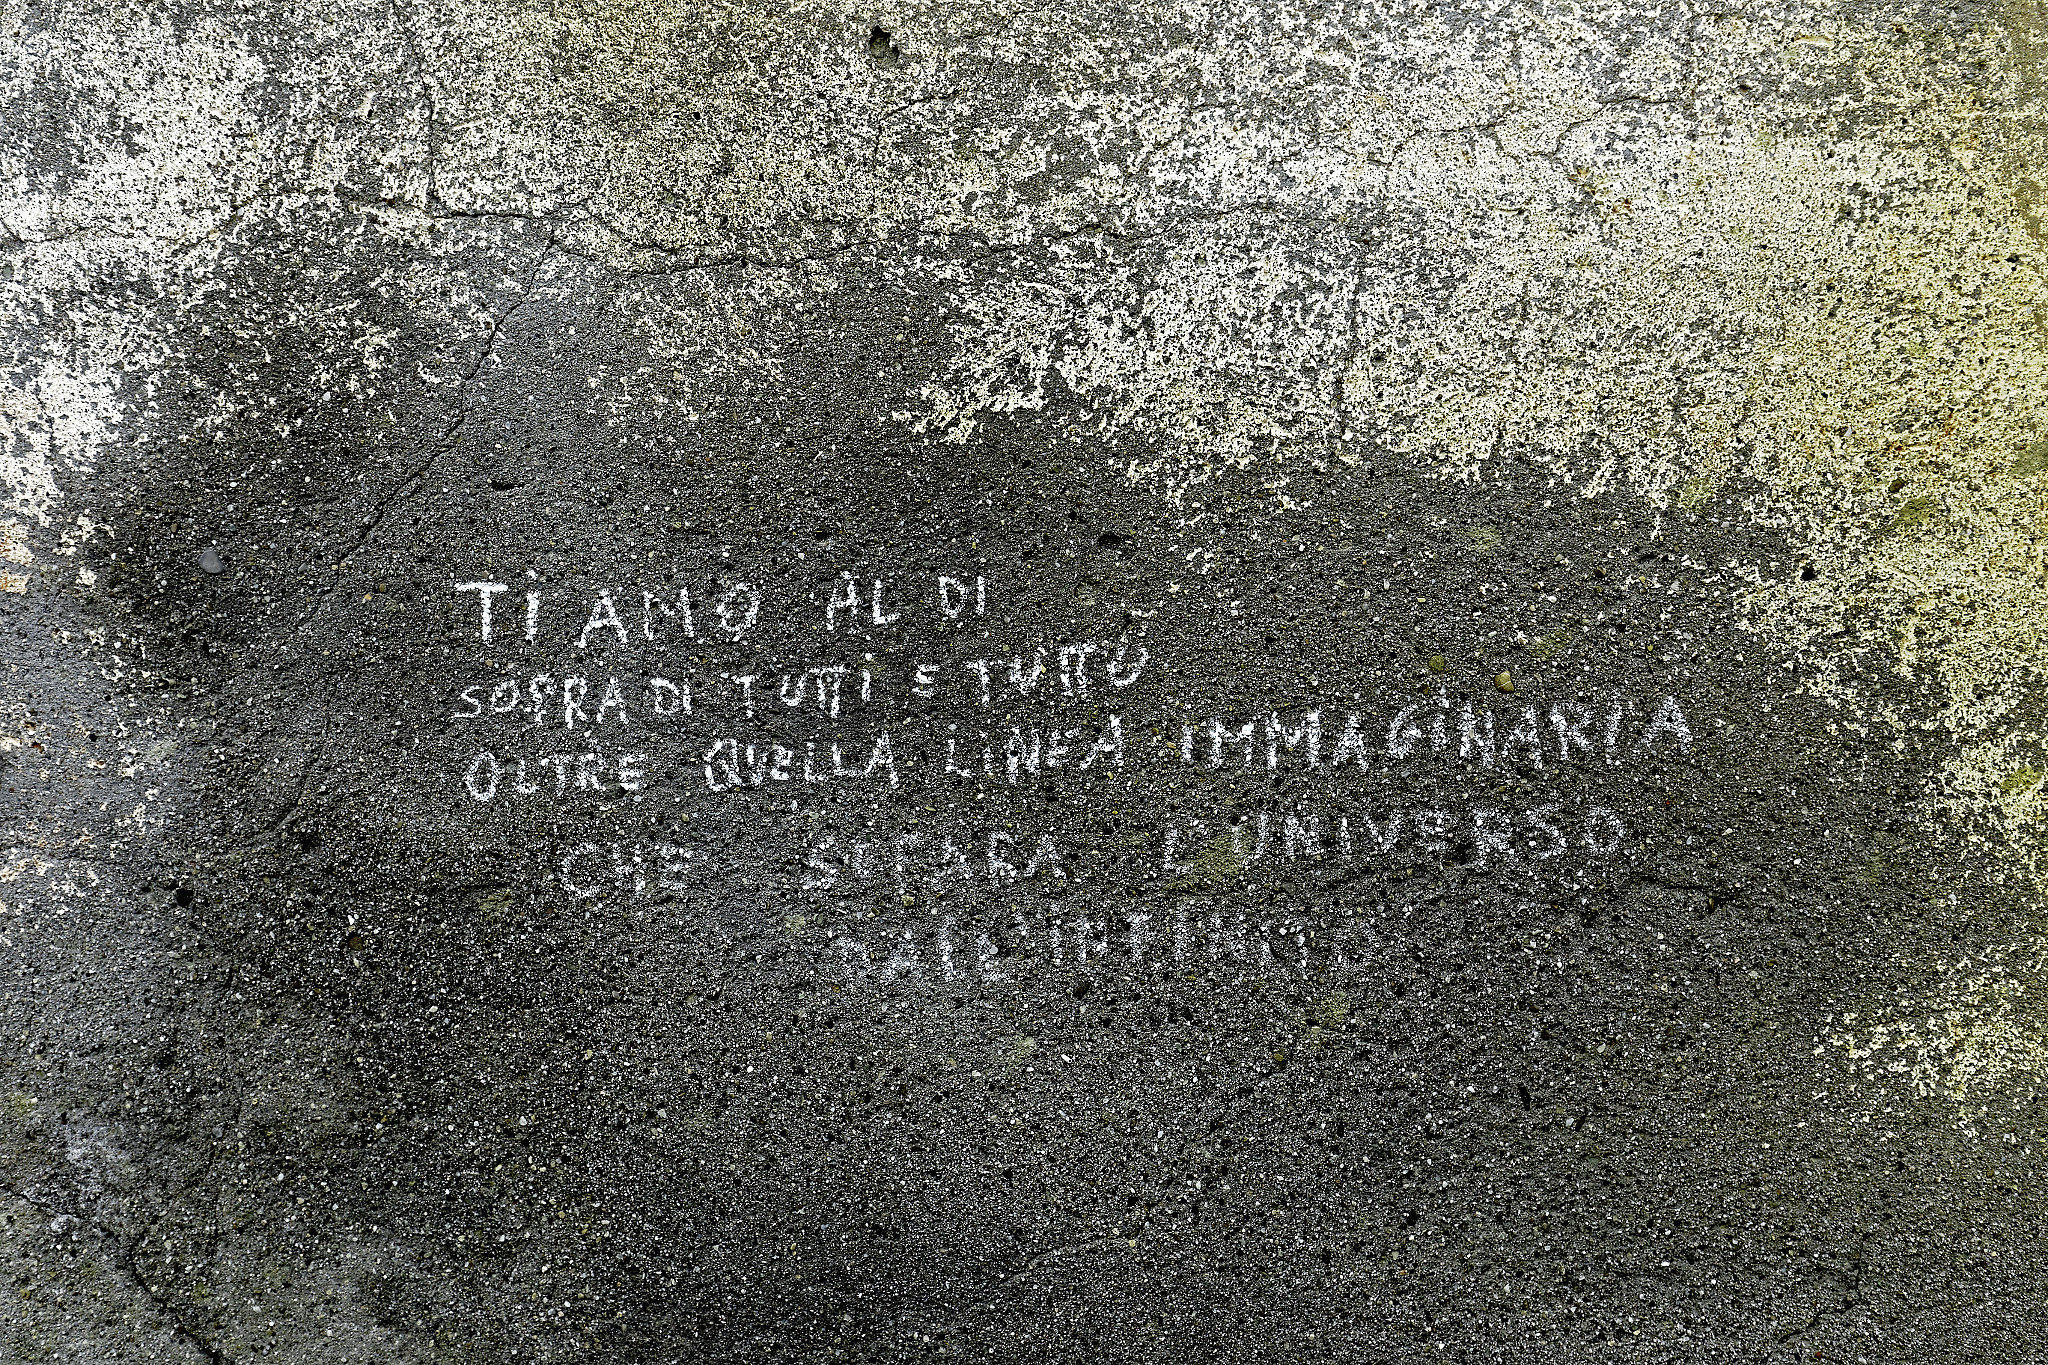 TI AMO AL DI
SOPRA DI TUTTI E TUTTO
OLTRE QUELLA LINEA IMMAGINARIA
CHE SEPARA L'UNIVERSO
DALL'INFINITO